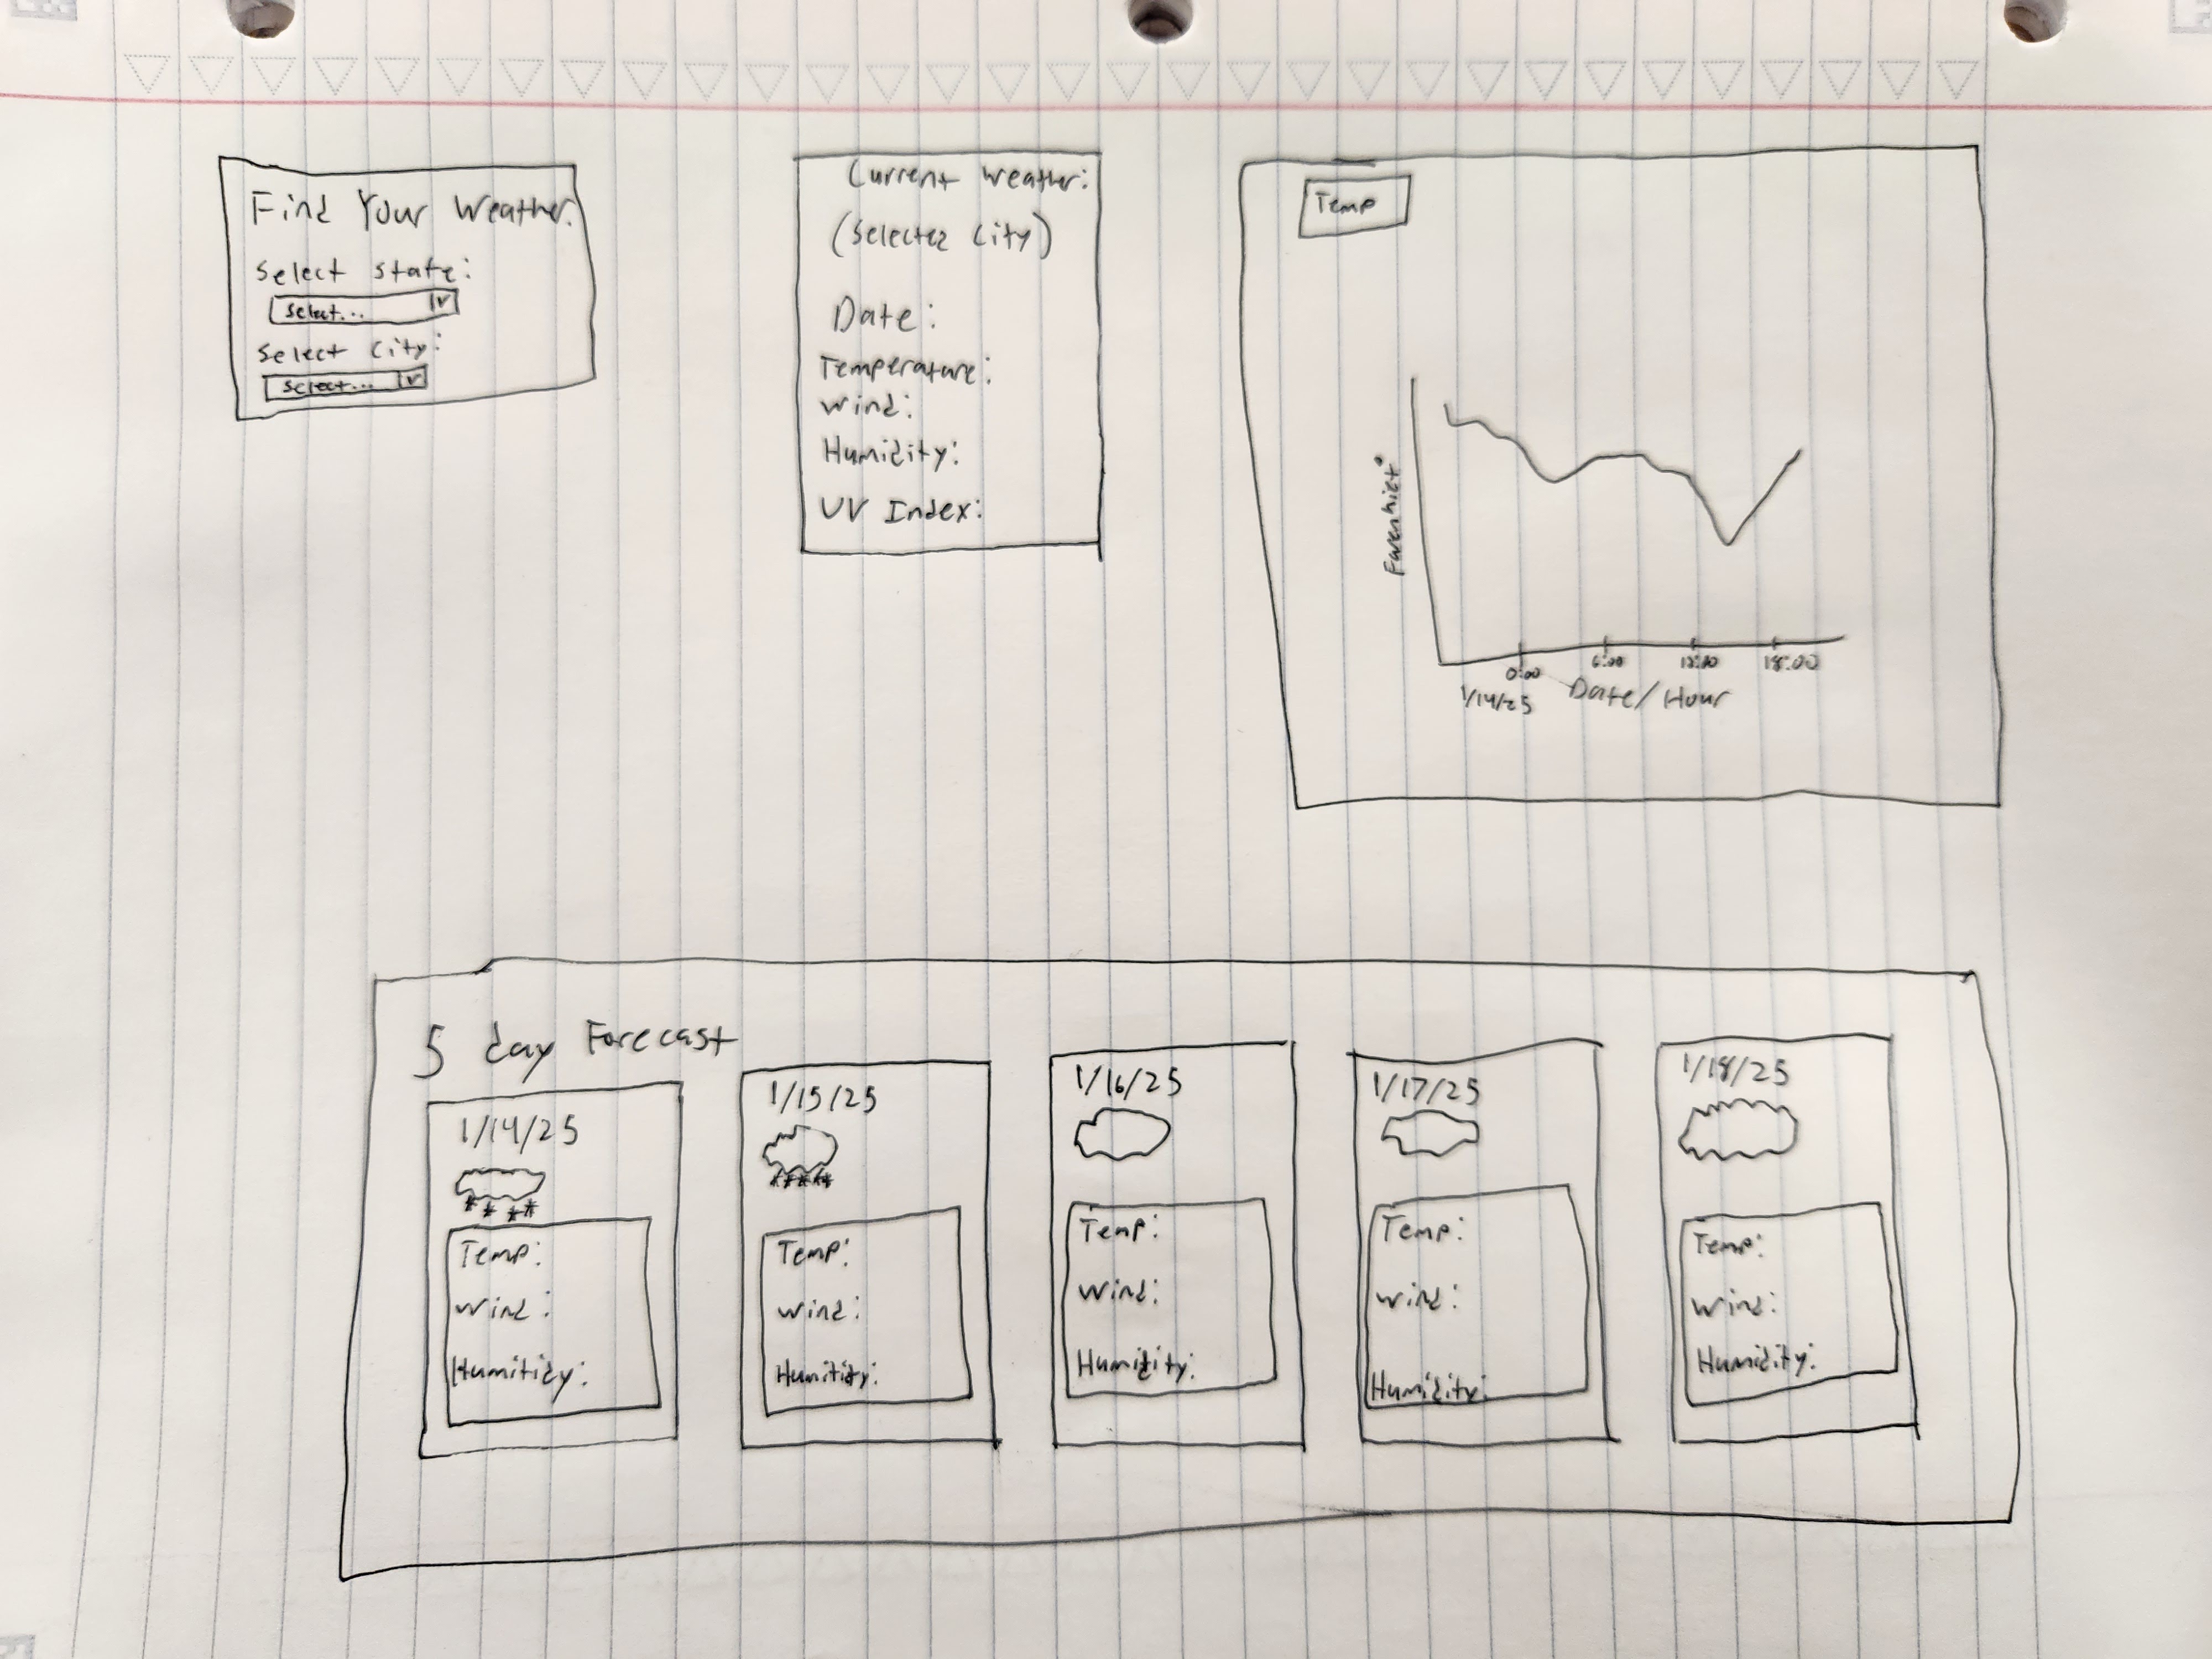 Find Your Weather:
Select State:
Select...
Select City:
Select...
Current Weather:
(Selected City)
Date:
Temperature:
Wind:
Humidity:
UV Index:
Temp
Farenhiet°
0:00
6:00
18:00
1/14/25
Date/Hour
5 day Forecast
1/14/25
Temp:
Wind:
Humitidy:
1/15/25
Temp:
Wind:
Humidity:
1/16/25
Temp:
Wind:
Humidity:
1/17/25
Temp:
Wind:
Humidity:
1/18/25
Temp:
Wind:
Humidity: